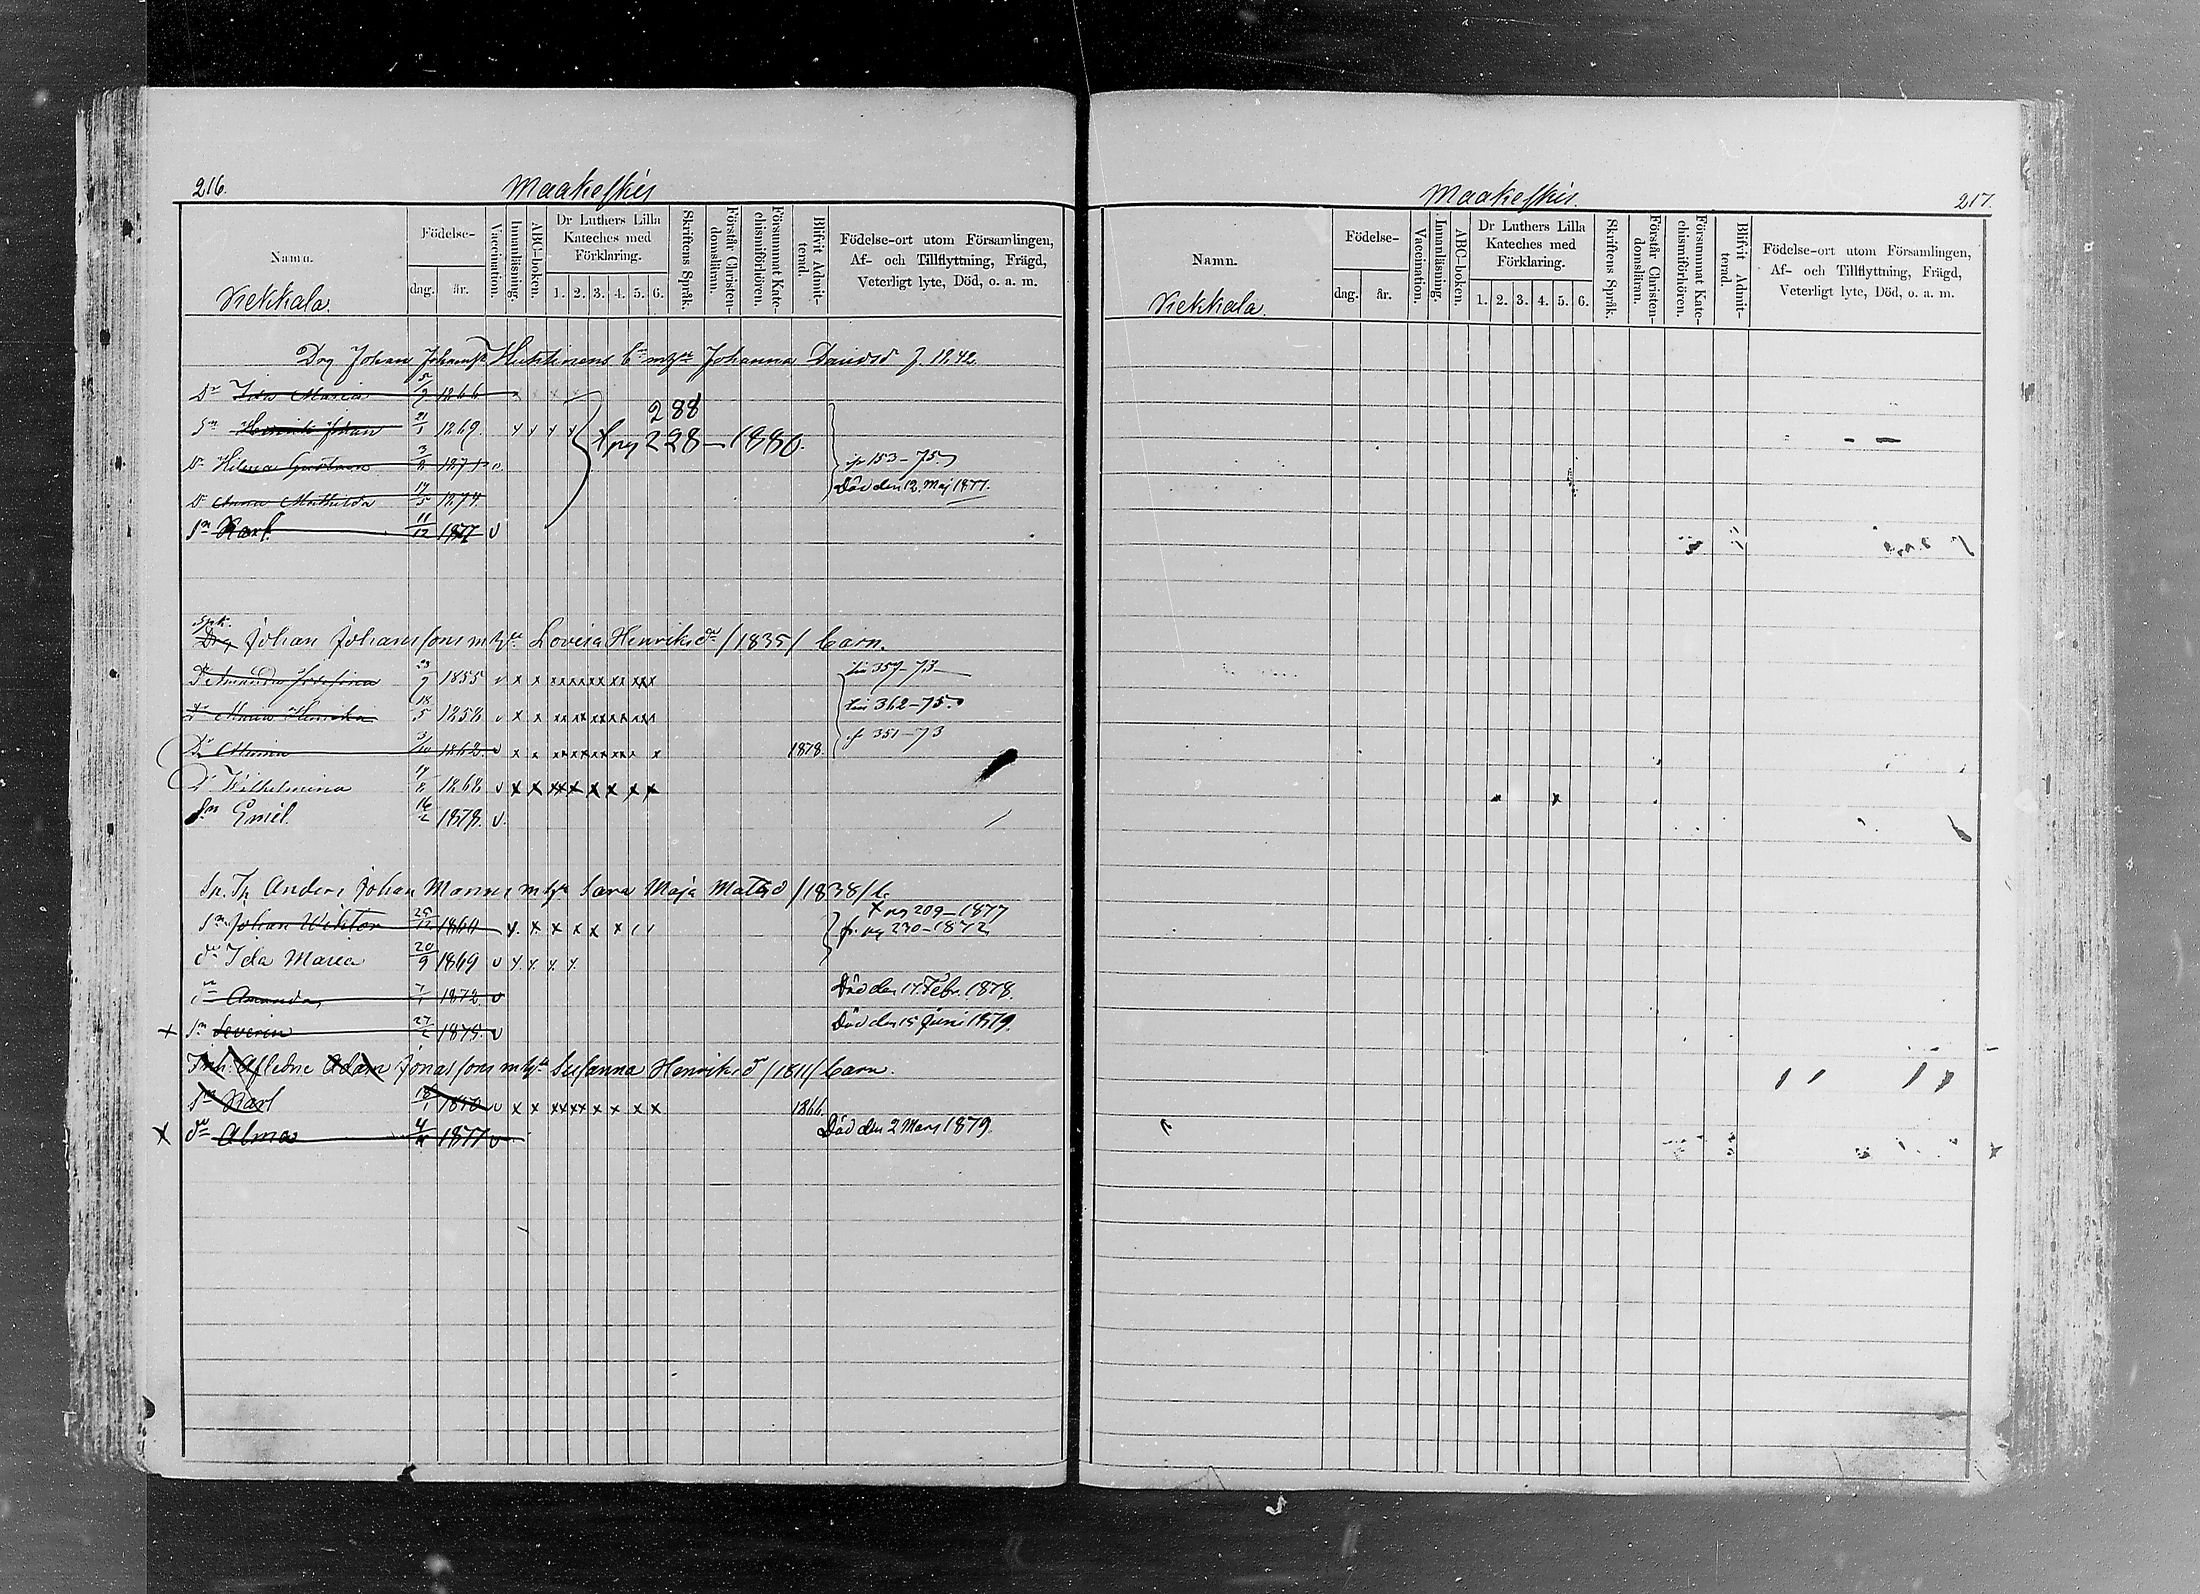 216.
Maakeskis
Namn.
Födelse-
dag.
år.
Vaccination.
Innanläsning.
ABC-boken.
Dr Luthers Lilla
Kateches med
Förklaring.
1. 2. 3. 4. 5. 6.
Skriftens Språk.
Förstår Christen-
domsläran.
Försummat Kate-
chismiförhören.
Blifvit Admit-
terad.
Födelse-ort utom Församlingen,
Af- och Tillflyttning, Frägd,
Veterligt lyte, Död, o. a. m.
Viekkala.
Drg Johan Johanss Huhtinens mhst Johanna Davidsd f. 1842
Dr Ida Maria 5/9 1866
288
Sn Henrik Johan 21/1 1869. x x x x
pg 228-1880.
Dr Hilma Gustava 3/8 1871 v.
fr 153-75.
Dr Anna Mathilda 17/5 1874.
Död den 12. Maj 1877.
Sn Karl. 11/12 1877 v
Spk.
Drg Johan Johanssons mhst Lovisa Henriksdr /1835/ barn.
Dr Amanda Josefina 23/7 1855 v x x xxxxxxxx xxx
till 357-73
Dr Maria Henrika 18/5 1858 v x x xxxxxxxxxx
till 362-75.
Dr Minna 3/10 1862. v x x xxxxxxx x 1878.
fr 351-73
Dr Wilhelmina 1868 v x x xx x x x x x
Sn Emil. 16/2 1878. v.
Sp. Tp Anders Johan Mannes mhst Sara Maja Matsd /1838/ b.
x pg 209-1877
Sn Johan Wiktor 29/12 1860 x. x x x x x
fr. pg 230-1872
dr Ida Maria 20/9 1869 v x x x x
dr Amanda 7/1 1872 v
Död den 17. Febr. 1878.
x Sn Severin 27/2 1875. v
Död den 15 Juni 1879.
Inh. Afledne Adam Jonassons mhst Susanna Henriksd /1811/ barn.
Sn Karl 18/1 1850 v x x xxxx x x x x 1866.
x dr Alma 1877 v
Död den 2 Mars 1879.
Maakeskis.
217.
Namn.
Födelse-
dag.
år.
Vaccination.
Innanläsning.
ABC-boken.
Dr Luthers Lilla
Kateches med
Förklaring.
1. 2. 3. 4. 5. 6.
Skriftens Språk.
Förstår Christen-
domsläran.
Försummat Kate-
chismiförhören.
Blifvit Admit-
terad.
Födelse-ort utom Församlingen,
Af- och Tillflyttning, Frägd,
Veterligt lyte, Död, o. a. m.
Viekkala.